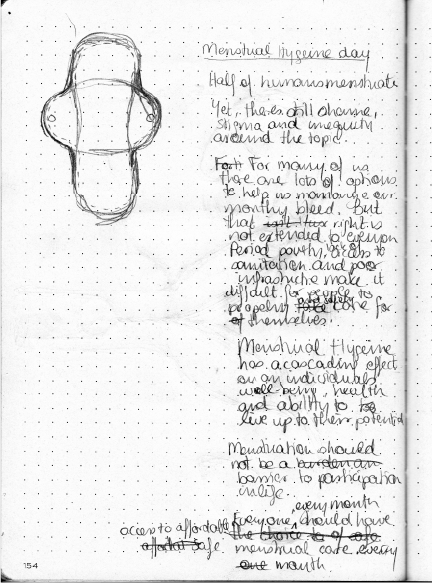 Menstrual Hygeine day
Half of humans menstruate
Yet, theres still shame,
stigma and inequity
around the topic.
For many of us
there are lots of options
to help us manage our
monthly bleed. But
that right is
not extended to everyon
Period poverty, lack of access to
sanitation and poor
infrastructure make it
difficult for people to
properly and safely care for
themselves.
Menstrual Hygeine
has a cascading effect
on an individuals
well-being, health
and ability to
live up to their potential
Menstruation should
not be a
barrier to participation
in life.
every month
Everyone, should have
access to affordable
safe
menstrual care every
month
154